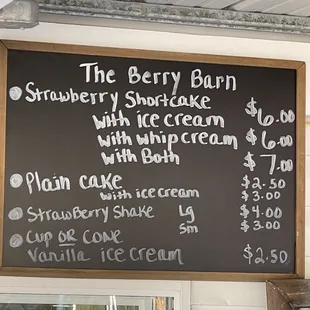 The Berry Barn
Strawberry Shortcake
with ice cream $6.00
with whip cream $6.00
with Both $7.00
Plain cake $2.50
with ice cream $3.00
Strawberry Shake Lg $4.00
Sm $3.00
Cup OR Cone
Vanilla ice cream $2.50